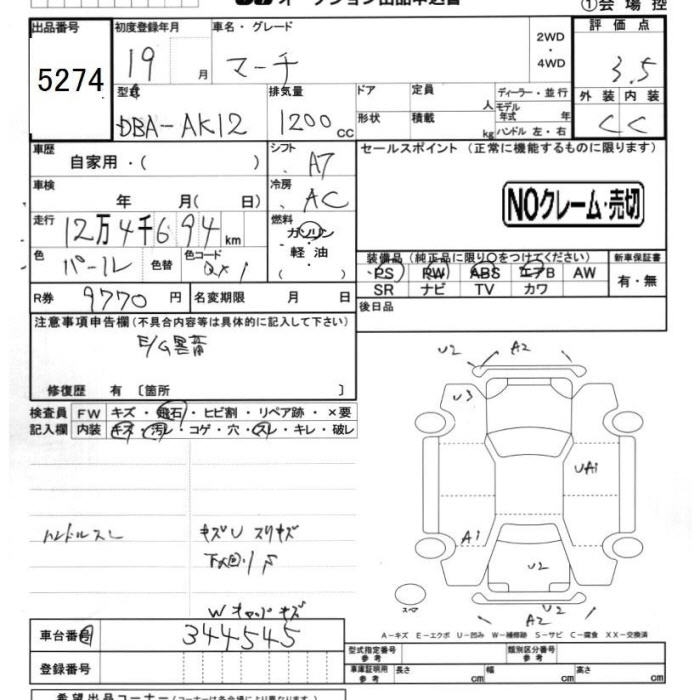 オークション出品申込書 ①会場控
出品番号 初度登録年月 車名・グレード 2WD・4WD 評価点
5274 19 月 マーチ 3.5
型式 排気量 ドア 定員 人 ディーラー・並行 外装 内装
DBA-AK12 1200cc 形状 積載 kg モデル年式 年 ハンドル 左・右 C C
車歴 自家用・( ) シフト A7 セールスポイント (正常に機能するものに限ります)
車検 年 月( 日) 冷房 AC NOクレーム・売切
走行 12万4千694km 燃料 ガソリン・軽油・( )
色 パール 色替 色コード QX1 装備品 (純正品に限り○をつけてください) 新車保証書
PS PW ABS エアB AW 有・無
SR ナビ TV カワ
R券 9770円 名変期限 月 日 後日品
注意事項申告欄 (不具合内容等は具体的に記入して下さい)
修復歴 有 〔箇所 〕
検査員 FW キズ・飛石・ヒビ割・リペア跡・×要
記入欄 内装 キズ・汚レ・コゲ・穴・スレ・キレ・破レ
U2 A2
U3
UA1
A1
U2
スペア
U2
A2
ハンドルスレ キズU スリキズ
W キャップキズ
A-キズ E-エクボ U-凹み W-補修跡 S-サビ C-腐食 XX-交換済
車台番号 344545 型式指定番号 参考 類別区分番号 参考
登録番号 車庫証明 参考 長さ cm 幅 cm 高さ cm
希望出品コーナー (コーナーは各会場により異なります)